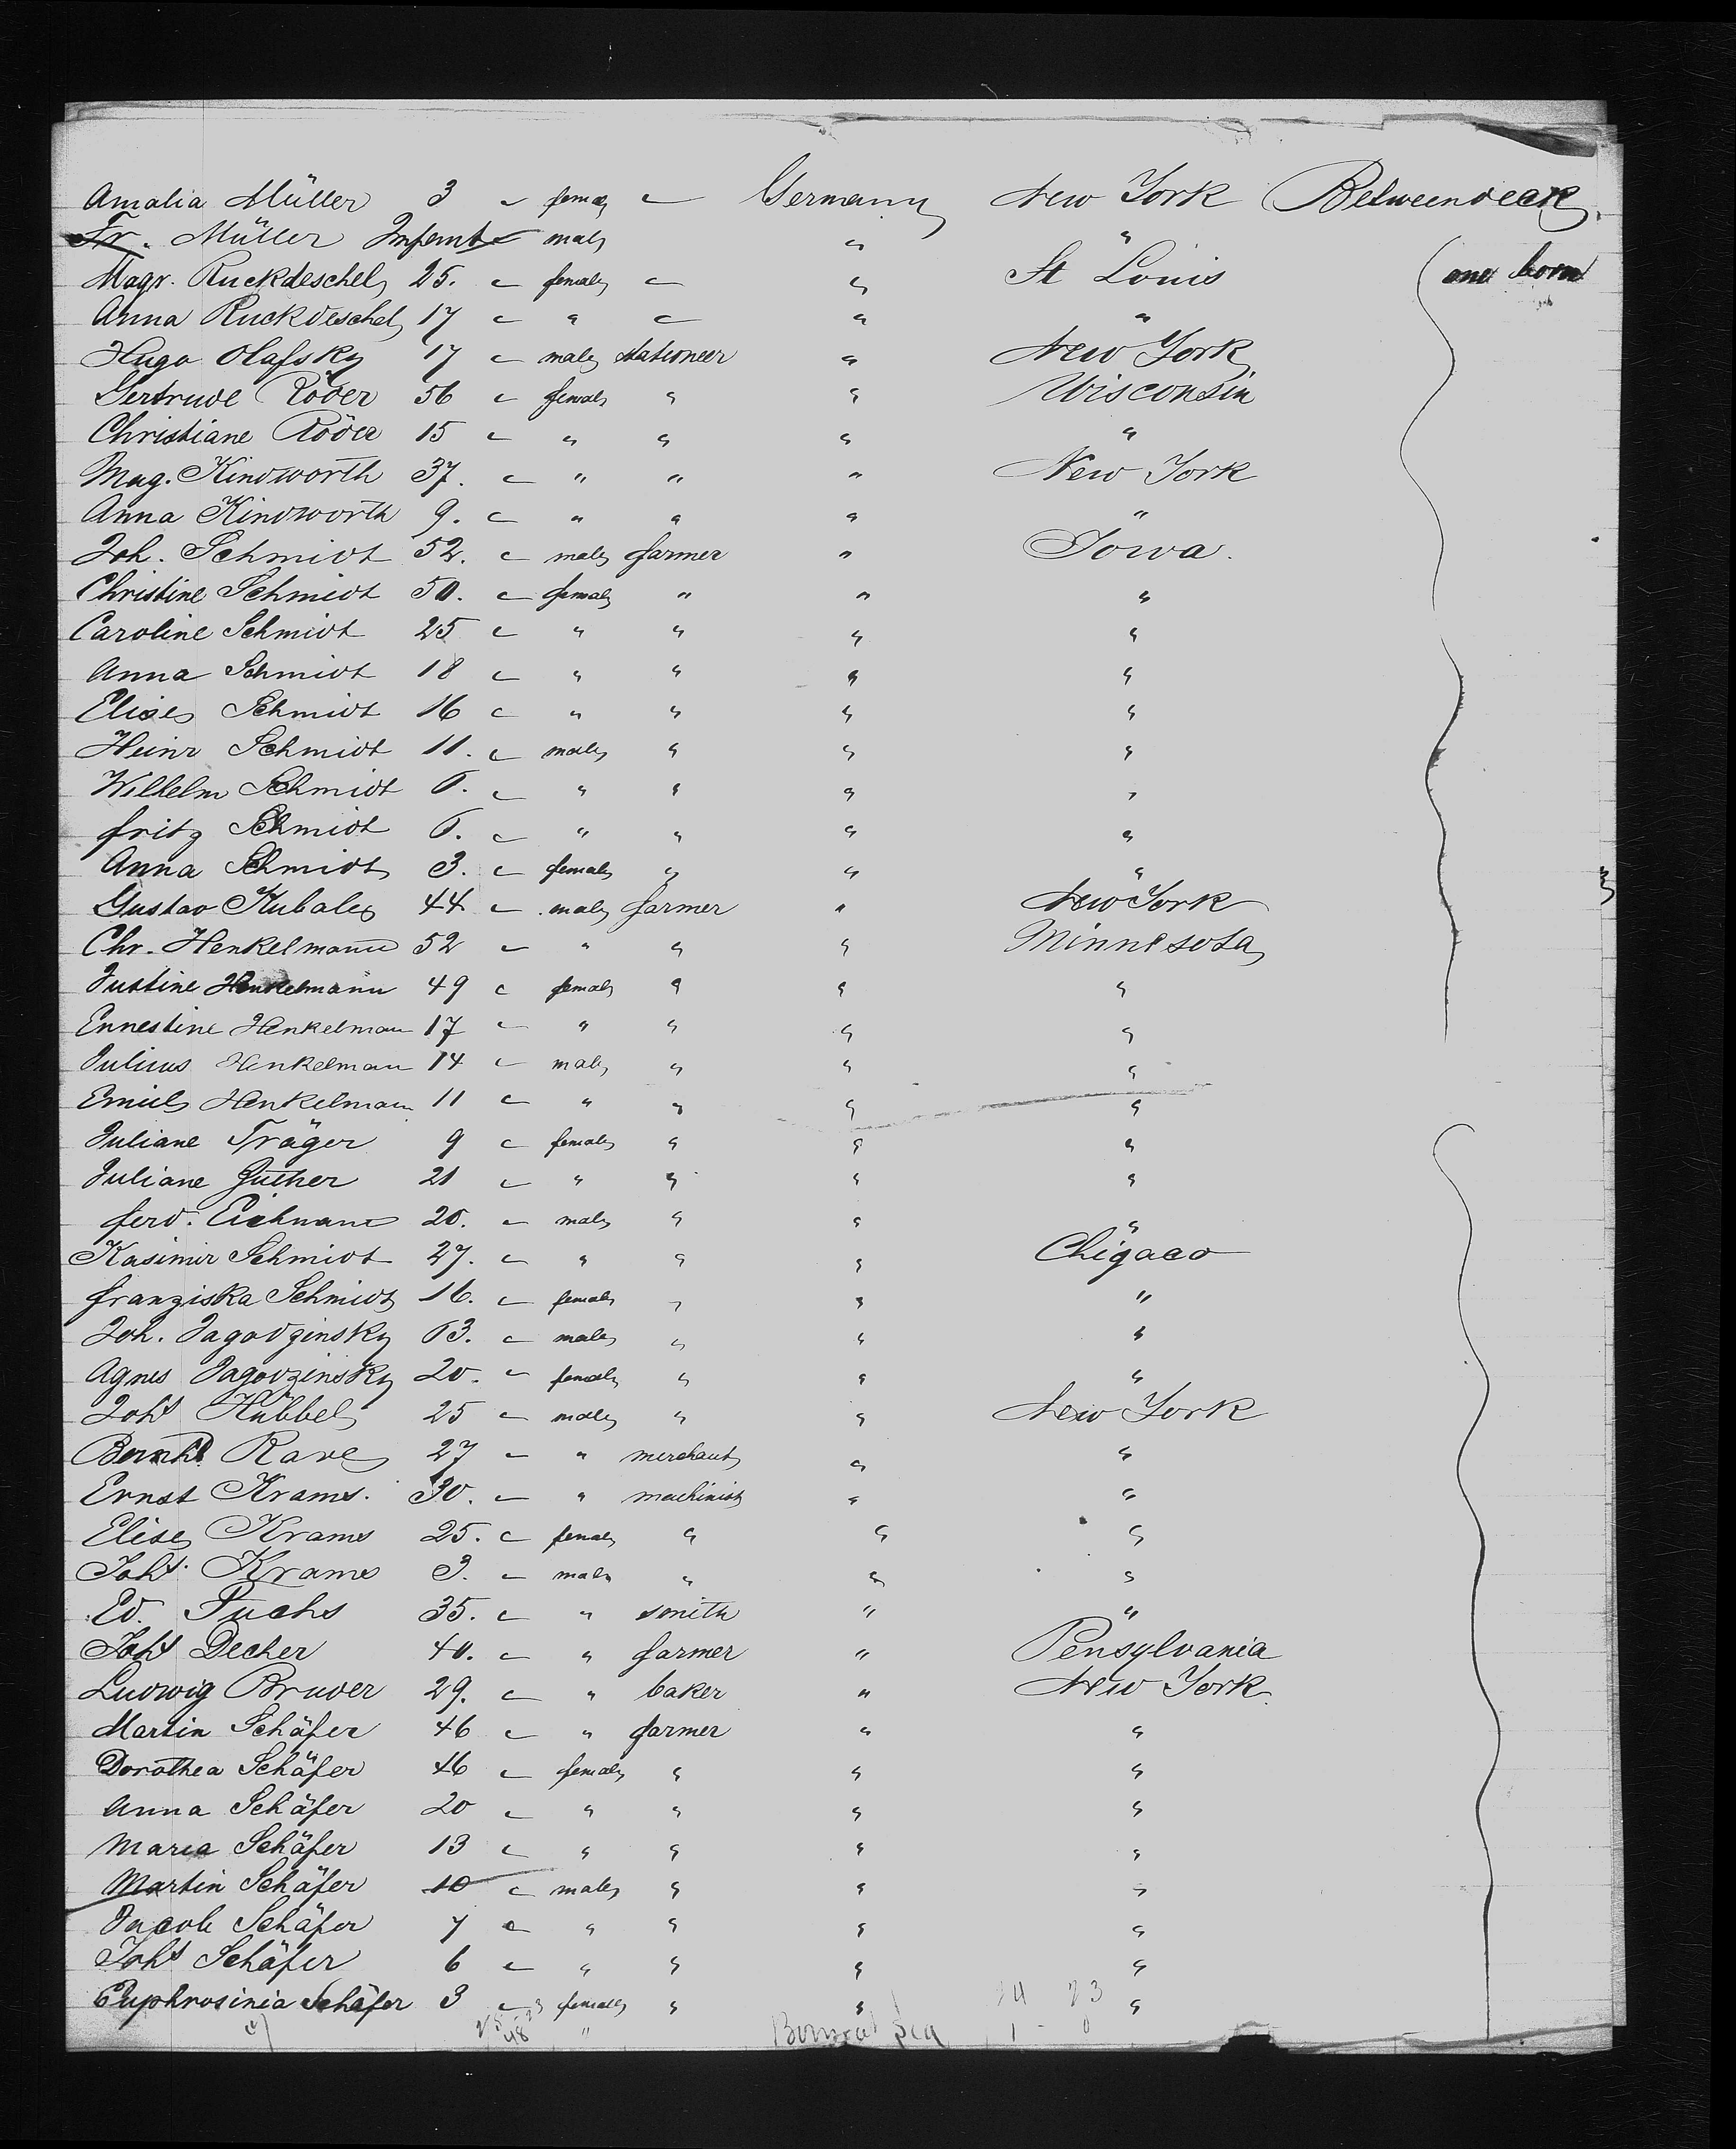 Amalia Müller 3 " female " Germany New York Betweendeck
Fr. Müller Infant " male " "
Magr. Ruckdeschel 25. " female " " St Louis one born
Anna Ruckdeschel 17 " " " " "
Hugo Olafsky 17 " male stationeer " New York
Gertrude Röder 56 " female " " Wisconsin
Christiane Röder 15 " " " " "
Mag. Kindworth 37. " " " " New York
Anna Kindworth 9. " " " " "
Joh. Schmidt 52. " male farmer " Iowa.
Christine Schmidt 50. " female " " "
Caroline Schmidt 25 " " " " "
Anna Schmidt 18 " " " " "
Elise Schmidt 16 " " " " "
Heinr Schmidt 11. " male " " "
Wilhelm Schmidt 6. " " " " "
fritz Schmidt 6. " " " " "
Anna Schmidt 3. " female " " "
Gustav Kubale 44 " male farmer " New York
Chr. Henkelmann 52 " " " " Minnesota
Justine Henkelmann 49 " female " " "
Ennestine Henkelman 17 " " " " "
Julius Henkelman 14 " male " " "
Emil Henkelman 11 " " " " "
Juliane Träger 9 " female " " "
Juliane Guther 21 " " " " "
ferd. Eichmann 20. " male " " "
Kasimir Schmidt 27. " " " " Chigaco
franziska Schmidt 16. " female " " "
Joh. Jagodzinsky 63. " male " " "
Agnes Jagodzinsky 20. " female " " "
Joht Hübbel 25 " male " " New York
Bernhd Rave 27 " " merchant " "
Ernst Krams. 30. " " machinist " "
Elise Krams 25. " female " " "
Joht. Krams 3. " male " " "
Ed. Fuchs 35. " " smith " "
Joht Decher 40. " " farmer " Pensylvania
Ludwig Bruder 29. " " baker " New York.
Martin Schäfer 46 " " farmer " "
Dorothea Schäfer 46 " female " " "
Anna Schäfer 20 " " " " "
Maria Schäfer 13 " " " " "
Martin Schäfer 10 " male " " "
Jacob Schäfer 7 " " " " "
Joht Schäfer 6 " " " " "
Euphrosinia Schäfer 3 " female " " "